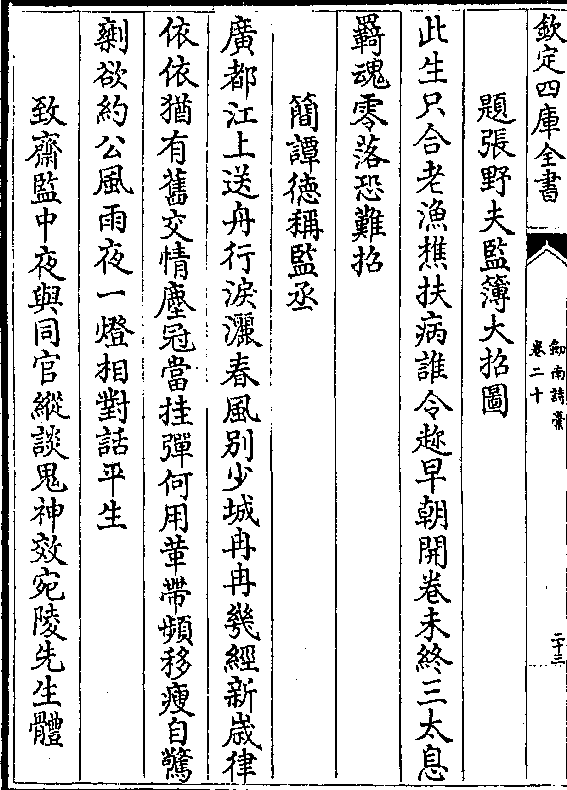 欽定四庫全書
劔南詩藁
卷二十
二十三
題張野夫監簿大招圖
此生只合老漁樵扶病誰令趂早朝開卷未終三太息
羇魂零落恐難招
簡譚徳稱監丞
廣都江上送舟行淚灑春風别少城冉冉幾經新歳律
依依猶有舊交情塵冠當挂彈何用革帶頻移瘦自驚
剩欲約公風雨夜一燈相對話平生
致齋監中夜與同官縱談鬼神效宛陵先生體